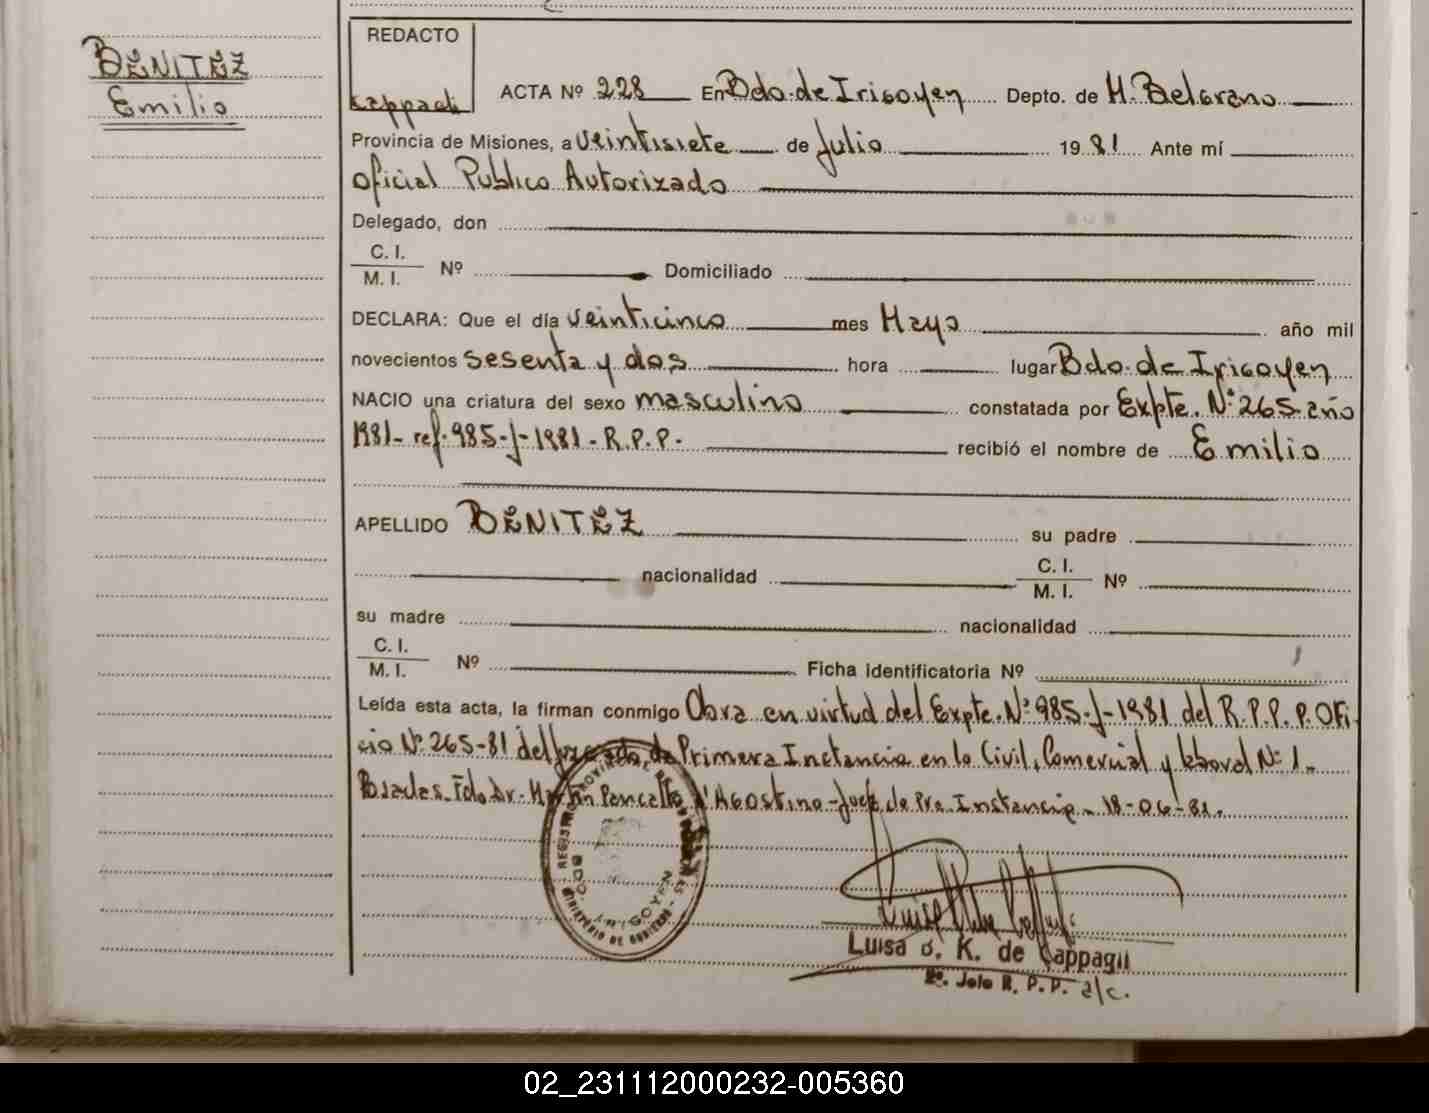 BENITEZ
Emilio
REDACTO
Cappagli
ACTA Nº 228 En Bdo. de Irigoyen Depto. de M. Belgrano
Provincia de Misiones, a veintisiete de Julio 1981 Ante mí
Oficial Publico Autorizado
Delegado, don
C. I.
M. I. Nº Domiciliado
DECLARA: Que el día veinticinco mes Mayo año mil
novecientos sesenta y dos hora lugar Bdo. de Irigoyen
NACIO una criatura del sexo masculino constatada por Expte. Nº 265 año
1981- ref. 985-J-1981-R.P.P. recibió el nombre de Emilio
APELLIDO BENITEZ su padre
nacionalidad C. I.
M. I. Nº
su madre nacionalidad
C. I.
M. I. Nº Ficha identificatoria Nº
Leída esta acta, la firman conmigo Obra en virtud del Expte. Nº 985-J-1981 del R.P.P. p. Ofi-
cio Nº 265-81 del Juzgado de Primera Instancia en lo Civil, Comercial y laboral Nº 1-
Posadas- Fdo. Dr. Martin D'Agostino- Juez de Pra. Instancia- 18-06-81.
REGISTRO PROVINCIAL DE
BDO. IRIGOYEN
MINISTERIO DE GOBIERNO
Luisa K. de Cappagli
2º. Jefe R. P. P. a/c.
02_231112000232-005360